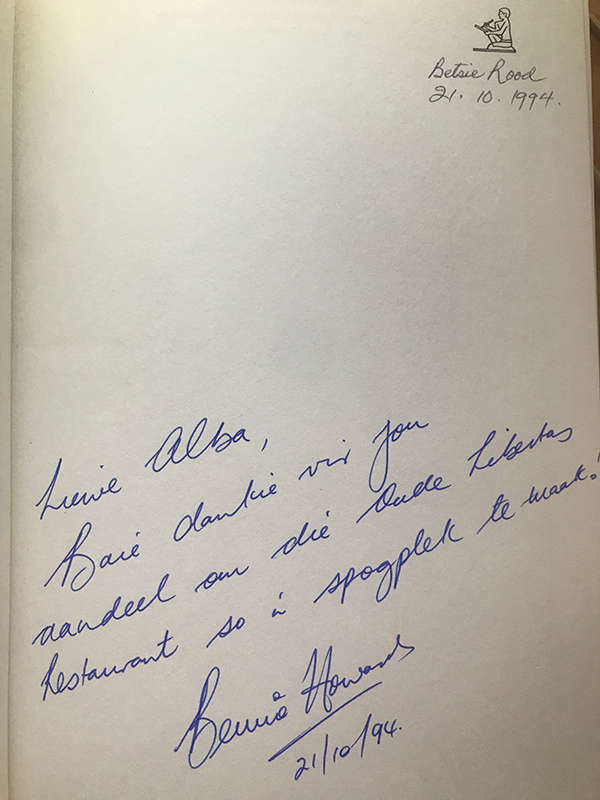 Betsie Rood
21.10.1994.
Liewe Alba,
Baie dankie vir jou
aandeel om die Oude Libertas
Restaurant so 'n spogplek te maak!
Bennie Howard
21/10/94.